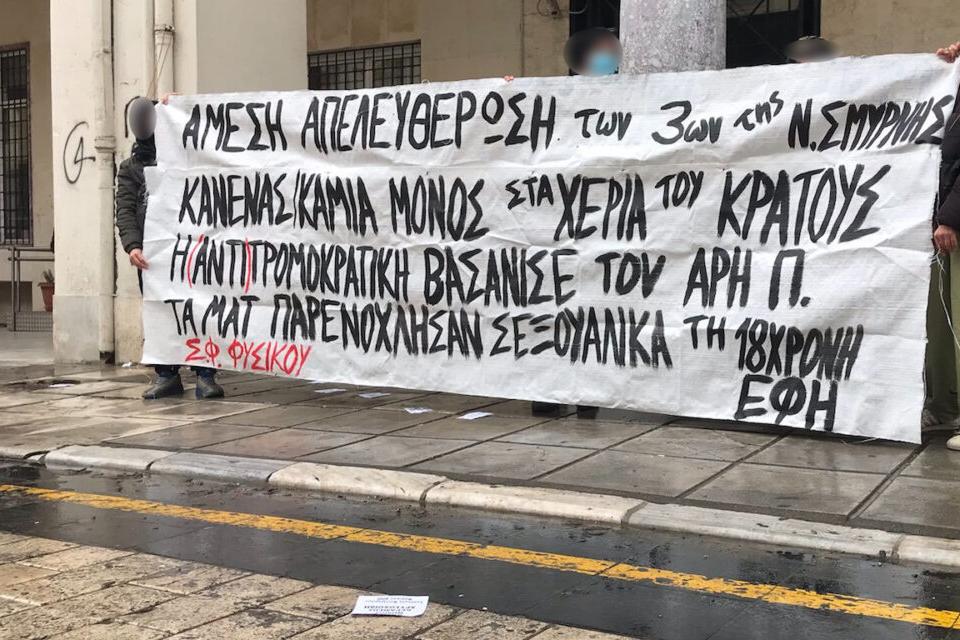 ΑΜΕΣΗ ΑΠΕΛΕΥΘΕΡΩΣΗ των 3ων της Ν. ΣΜΥΡΝΗΣ
ΚΑΝΕΝΑΣ/ΚΑΜΙΑ ΜΟΝΟΣ ΣΤΑ ΧΕΡΙΑ ΤΟΥ ΚΡΑΤΟΥΣ
Η (ΑΝΤΙ)ΤΡΟΜΟΚΡΑΤΙΚΗ ΒΑΣΑΝΙΣΕ ΤΟΝ ΑΡΗ Π.
ΤΑ ΜΑΤ ΠΑΡΕΝΟΧΛΗΣΑΝ ΣΕΞΟΥΑΛΙΚΑ ΤΗ 18ΧΡΟΝΗ
ΕΦΗ
Σ.Φ. ΦΥΣΙΚΟΥ